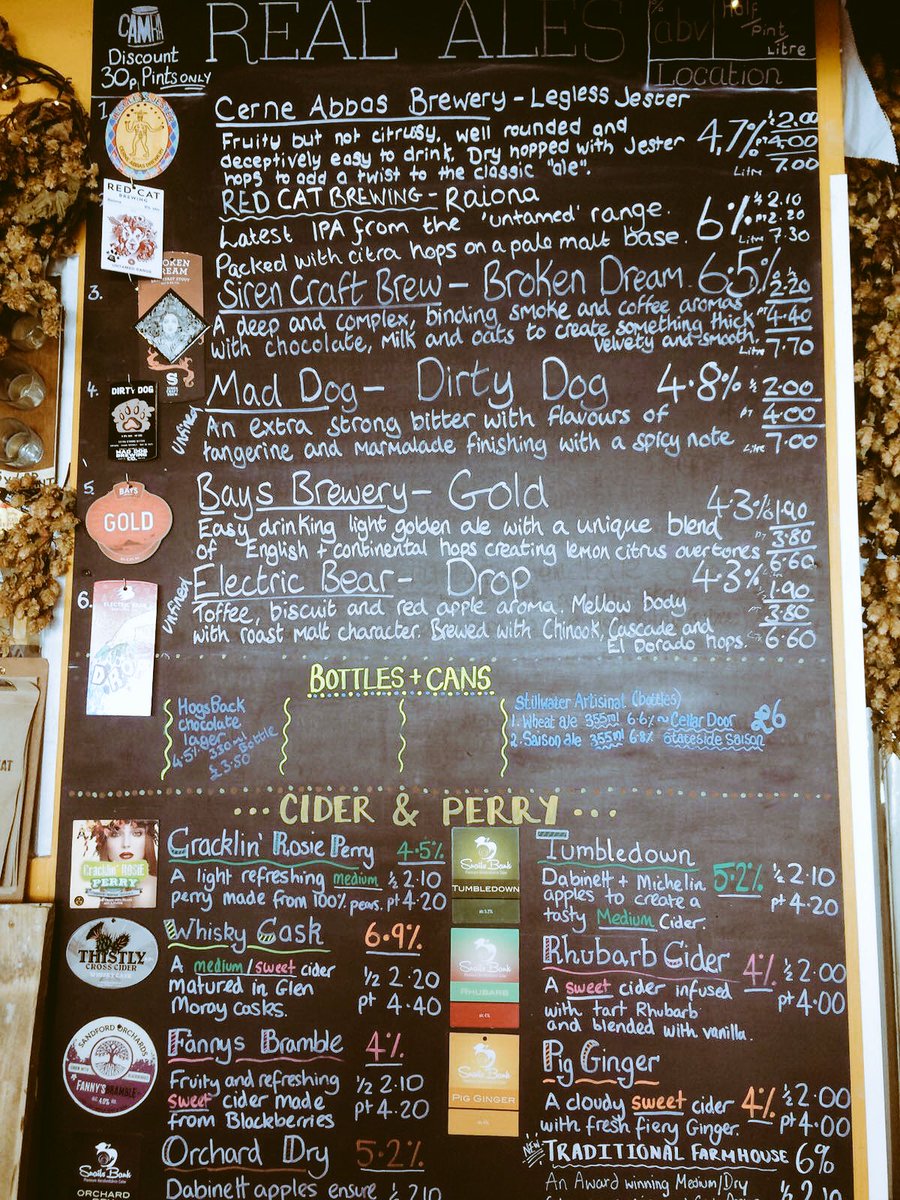 CAMRA
Discount
30p Pints ONLY
REAL ALES
% abv
Half
Pint
Litre
Location
1.
CERNE ABBAS BREWERY
Cerne Abbas Brewery - Legless Jester
Fruity but not citrussy, well rounded and
deceptively easy to drink. Dry hopped with Jester
hops to add a twist to the classic "ale".
4.7%
½ 2.00
pt 4.00
Litre 7.00
RED CAT
BREWING
UNTAMED RANGE
RED CAT BREWING - Raiona
Latest IPA from the 'untamed' range.
Packed with citra hops on a pale malt base.
6%
½ 2.10
pt 2.20
Litre 7.30
3.
BROKEN
DREAM
Siren Craft Brew - Broken Dream
A deep and complex, binding smoke and coffee aromas
with chocolate, Milk and oats to create something thick
velvety and smooth.
6.5%
½ 2.20
PT 4.40
Litre 7.70
4.
DIRTY DOG
MAD DOG
Unfined
Mad Dog - Dirty Dog
An extra strong bitter with flavours of
tangerine and marmalade finishing with a spicy note
4.8%
½ 2.00
PT 4.00
Litre 7.00
5.
BAYS
GOLD
Bays Brewery - Gold
Easy drinking light golden ale with a unique blend
of English + continental hops creating lemon citrus overtones
4.3%
½ 1.90
PT 3.80
6.60
6.
ELECTRIC BEAR
DROP
Unfined
Electric Bear - Drop
Toffee, biscuit and red apple aroma. Mellow body
with roast malt character. Brewed with Chinook, Cascade and
El Dorado hops.
4.3%
1.90
3.80
6.60
BOTTLES + CANS
HogsBack
chocolate
lager
4.5% 330ml
Bottle
£3.50
Stillwater Artisinal (bottles)
1. Wheat ale 355ml 6.6% ~ Cellar Door
2. Saison ale 355ml 6.8% Stateside Saison
£6
... CIDER & PERRY ...
Cracklin' ROSIE
PERRY
Cracklin' Rosie Perry 4.5%
A light refreshing medium
perry made from 100% pears.
½ 2.10
pt 4.20
THISTLY
CROSS CIDER
WHISKY CASK
Whisky Cask 6.9%
A medium/sweet cider
matured in Glen
Moray casks.
1/2 2.20
pt 4.40
SANDFORD ORCHARDS
FANNY'S BRAMBLE
Fannys Bramble 4%
Fruity and refreshing
sweet cider made
from Blackberries
1/2 2.10
pt 4.20
Snails Bank
ORCHARD DRY
Orchard Dry 5.2%
Dabinett apples ensure
½ 2.10
Snails Bank
TUMBLEDOWN
Tumbledown
Dabinett + Michelin
apples to create a
tasty Medium Cider.
5.2%
½ 2.10
pt 4.20
Snails Bank
RHUBARB
Rhubarb Cider 4%
A sweet cider infused
with tart Rhubarb
and blended with vanilla.
½ 2.00
pt 4.00
Snails Bank
PIG GINGER
Pig Ginger
A cloudy sweet cider
with fresh fiery Ginger.
4%
½ 2.00
pt 4.00
NEW
TRADITIONAL FARMHOUSE 6%
An Award winning Medium/Dry